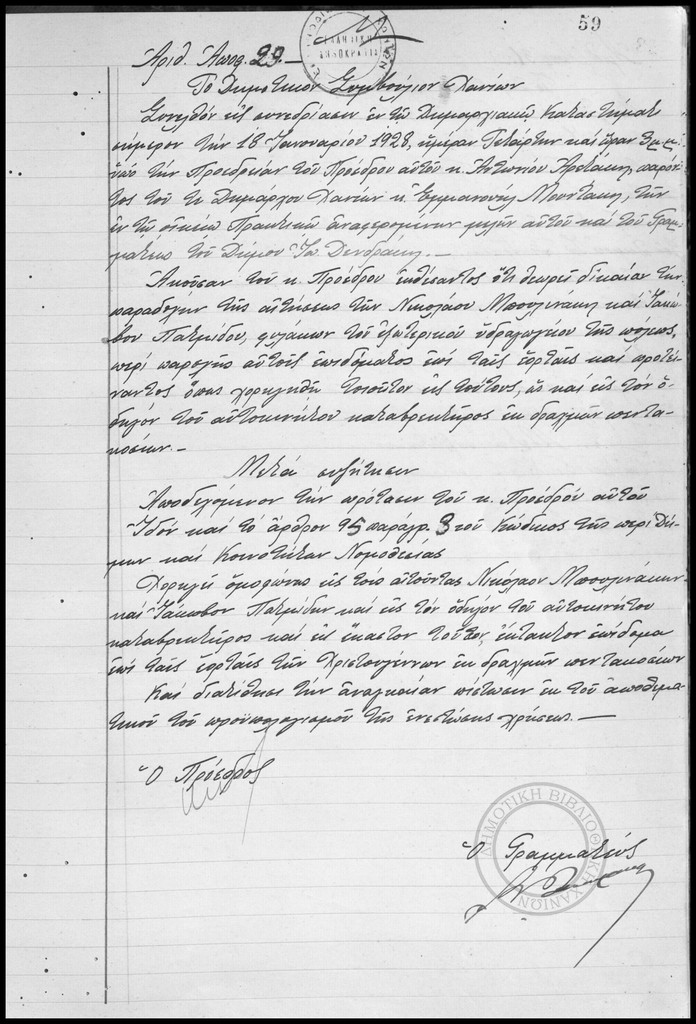 59
ΕΛΛΗΝΙΚΗ
ΔΗΜΟΚΡΑΤΙΑ
Ἀριθ. Ἀποφ. 29.-
Τὸ Δημοτικὸν Συμβούλιον Χανίων
Συνελθὸν εἰς συνεδρίασιν ἐν τῷ Δημαρχιακῷ Καταστήματι
σήμερον τὴν 18 Ἰανουαρίου 1928, ἡμέραν Τετάρτην καὶ ὥραν 3 μ.μ.
ὑπὸ τὴν Προεδρείαν τοῦ Προέδρου αὐτοῦ κ. Ἀντωνίου Ἀρετάκη, παρόν-
τος τοῦ κ. Δημάρχου Χανίων κ. Ἐμμανουὴλ Μουντάκη, τῶν
ἐν τῷ οἰκείῳ Πρακτικῷ ἀναφερομένων μελῶν αὐτοῦ καὶ τοῦ Γραμ-
ματέως τοῦ Δήμου Ἰω. Δενδράκη.-
Ἀκοῦσαν τοῦ κ. Προέδρου ἐκθέσαντος ὅτι θεωρεῖ δικαίαν τὴν
παραδοχὴν τῆς αἰτήσεως τῶν Νικολάου Μπολινάκη καὶ Ἰακώ-
βου Πατρίδου, φυλάκων τοῦ ἐξωτερικοῦ ὑδραγωγείου τῆς πόλεως,
περὶ παροχῆς αὐτοῖς ἐπιδόματος ἐπὶ ταῖς ἑορταῖς καὶ προτεί-
ναντος ὅπως χορηγηθῇ τοιοῦτον εἰς τούτους, ὡς καὶ εἰς τὸν ὁ-
δηγὸν τοῦ αὐτοκινήτου καταβρεκτῆρος ἐκ δραχμῶν πεντα-
κοσίων.-
Μετὰ συζήτησιν
Ἀποδεχόμενον τὴν πρότασιν τοῦ κ. Προέδρου αὐτοῦ
Ἰδὸν καὶ τὸ ἄρθρον 95 παράγρ. 3 τοῦ Κώδικος τῆς περὶ Δή-
μων καὶ Κοινοτήτων Νομοθεσίας
Χορηγεῖ ὁμοφώνως εἰς τοὺς αἰτοῦντας Νικόλαον Μπολινάκην
καὶ Ἰάκωβον Πατρίδην καὶ εἰς τὸν ὁδηγὸν τοῦ αὐτοκινήτου
καταβρεκτῆρος καὶ εἰς ἕκαστον τούτων, ἔκτακτον ἐπίδομα
ἐπὶ ταῖς ἑορταῖς τῶν Χριστουγέννων ἐκ δραχμῶν πεντακοσίων
Καὶ διατίθησι τὴν ἀναγκαίαν πίστωσιν ἐκ τοῦ ἀποθεμα-
τικοῦ τοῦ προϋπολογισμοῦ τῆς ἐνεστώσης χρήσεως.-
Ὁ Πρόεδρος
Ὁ Γραμματεύς
ΔΗΜΟΤΙΚΗ ΒΙΒΛΙΟΘΗΚΗ ΧΑΝΙΩΝ